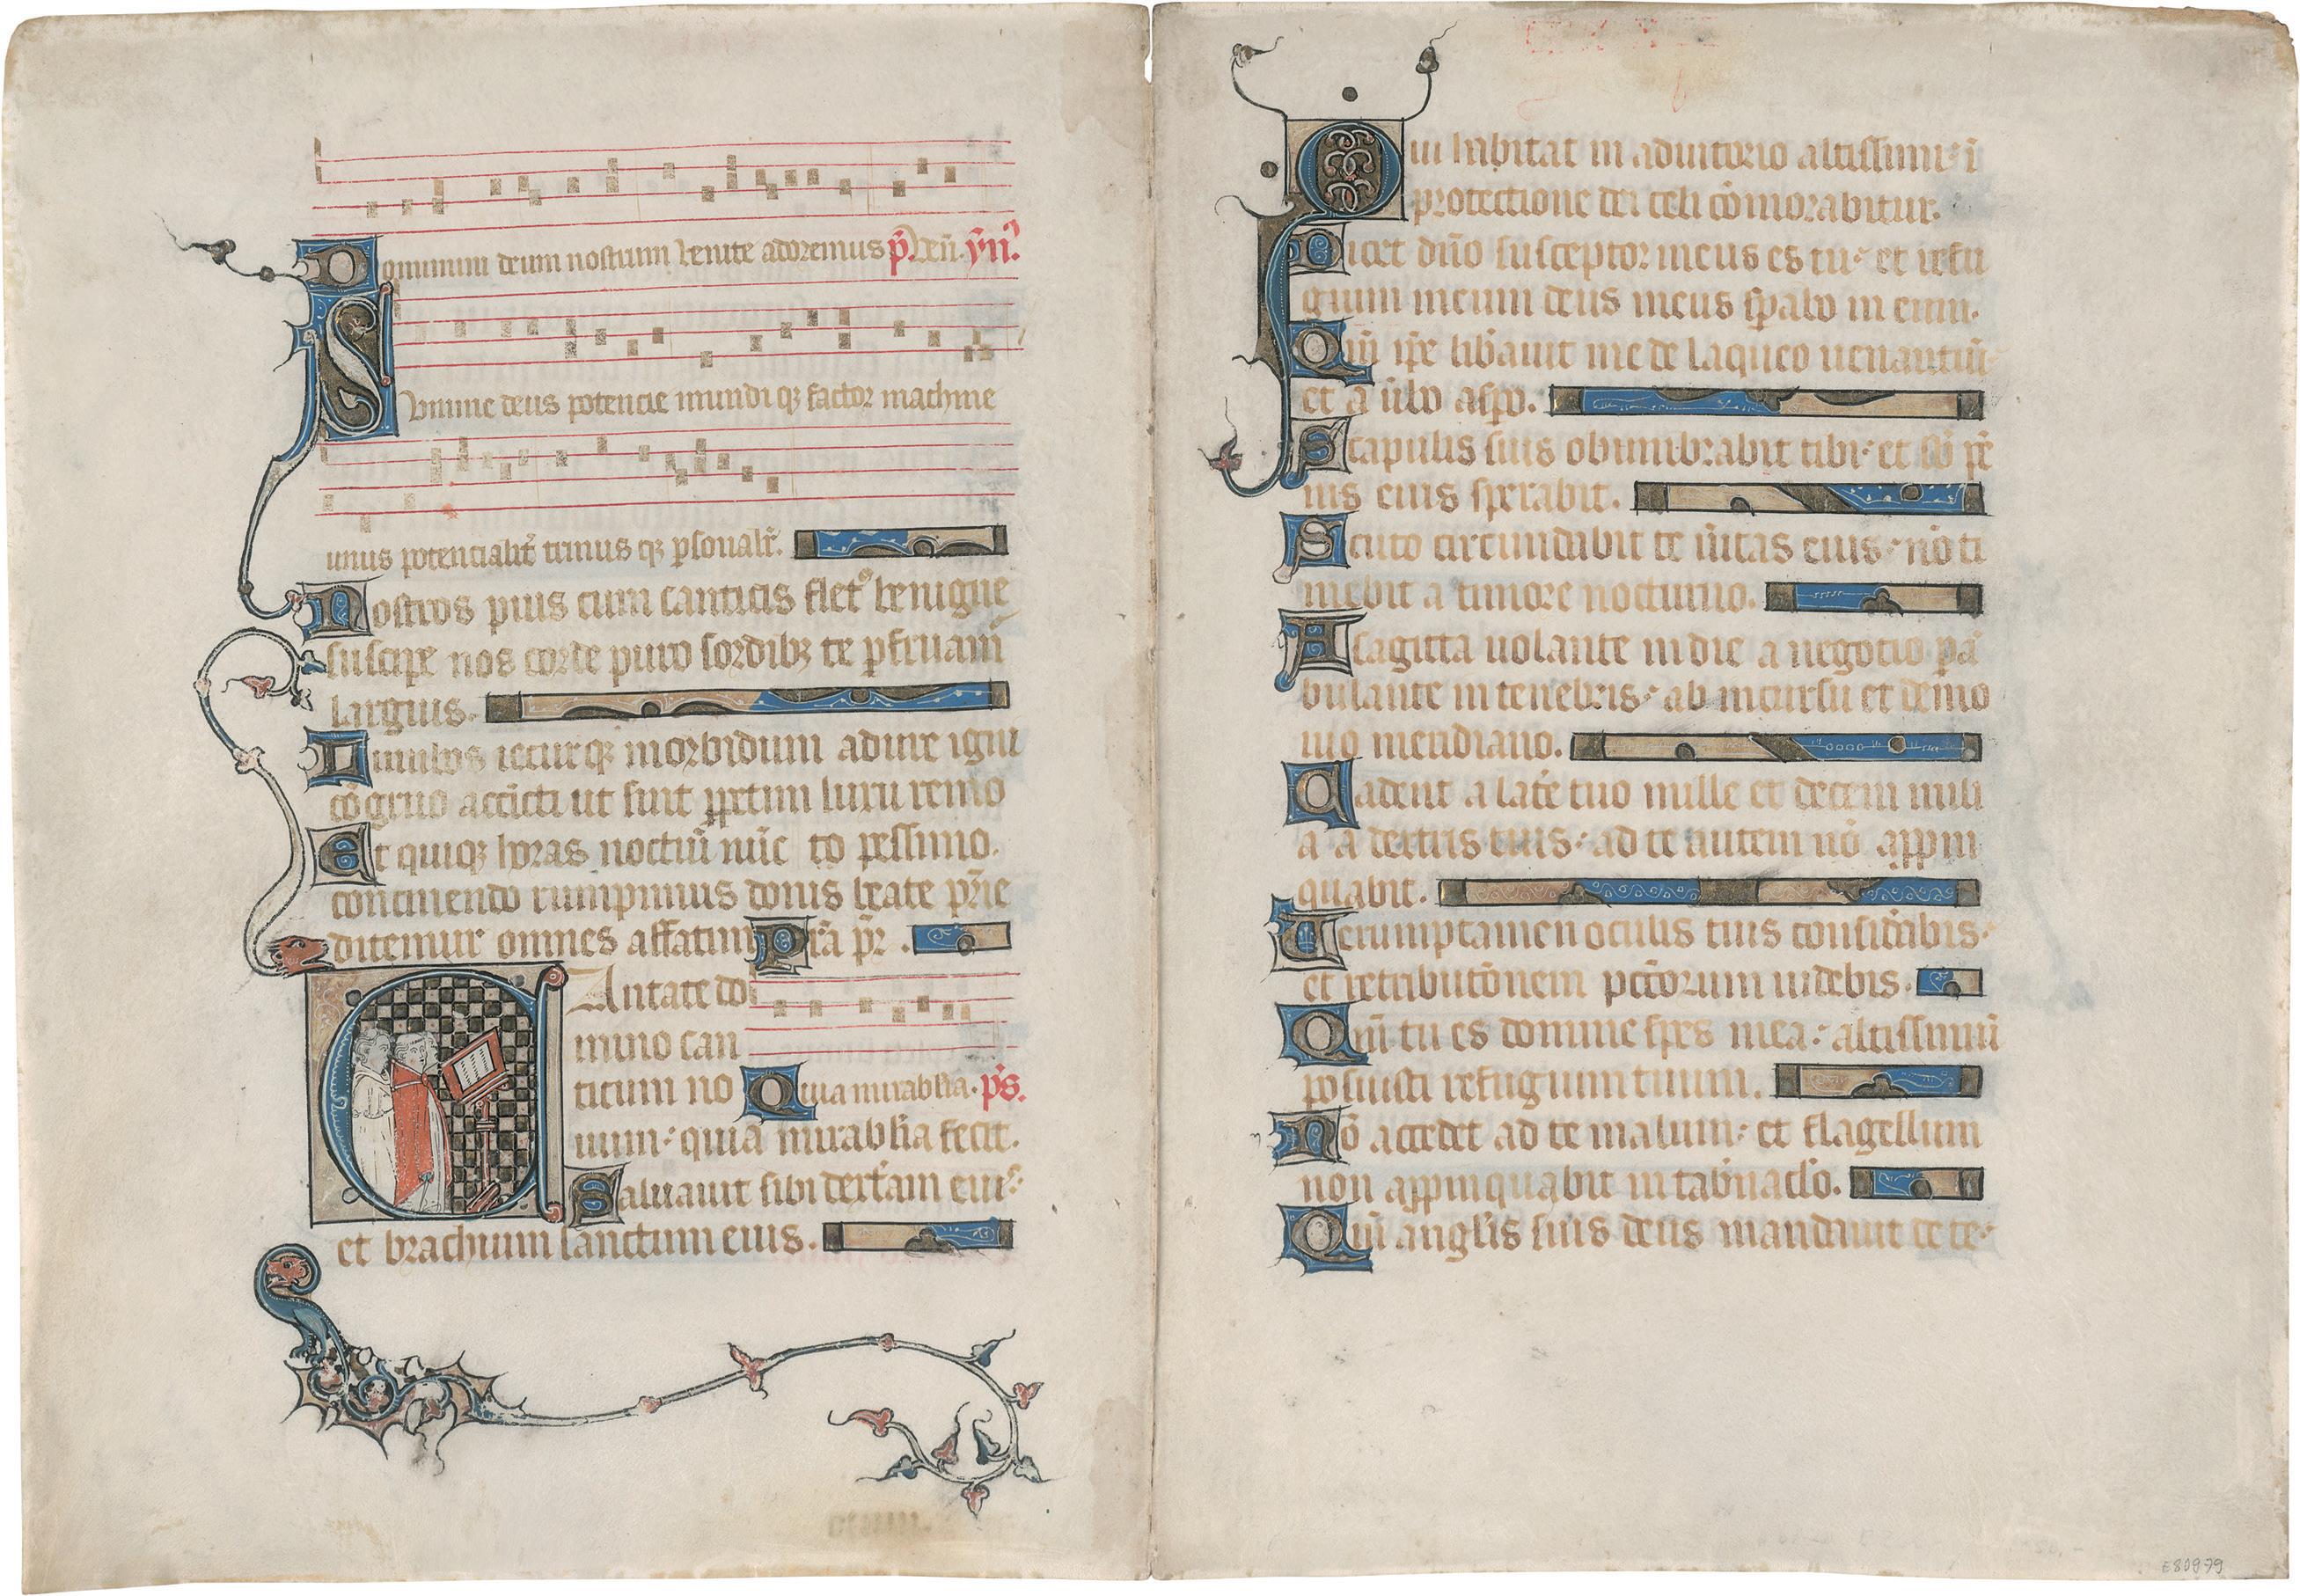 Dominum deum nostrum venite adoremus p̄s. Ven̄. ym̄.
Summe deus potencie mundi qꝫ factor machine
unus potencialit̄ trinus qꝫ ꝑsonalit̄.
Nostros pius cum canticis flet⁹ benigne
suscipe nos corde puro sordibꝫ te ꝑfruam̄
largius.
Lumbos iecur qꝫ morbidum adure igni
cōgruo accīcti ut sint ꝑpetim luxu remo
Et quiqꝫ horas noctiū nūc to pessimo.
concinendo rumpimus donis beate pr̄ie
ditemur omnes affatim Pr̄a pr̄.
Cantate do
mino can
ticum no Quia mirabilia. p̄s.
uum: quia mirabil̄ia fecit.
Saluauit sibi dext̄am eius:
et brachium sanctum eius.
Qui habitat in adiutorio altissimi: ī
protectione dei celi cōmorabitur.
Dicet dn̄o susceptor meus es tu: et refu
gium meum deus meus sꝑabo in eum.
Qm̄ ip̄e lib̄auit me de laqueo uenantiū
et a ūbo asꝑo.
Scapulis suis obumbrabit tibi: et sb̄ pē
nis eius sperabit.
Scuto circundabit te ūitas eius: nō ti
mebit a timore nocturno.
A sagitta uolante in die a negotio ꝑā
bulante in tenebris: ab incursu et demo
nio meridiano.
Cadent a lat̄e tuo mille et decem mili
a a dextris tuis: ad te autem nō appin
quabit.
Verumptamen oculis tuis consid̄abis:
et retributōnem pcc̄orum uidebis.
Qm̄ tu es domine spes mea: altissimū
posuisti refugium tuum.
Nō accedet ad te malum: et flagellum
non appinquabit in tab̄nac̄lo.
Qm̄ angl̄is suis deus mandauit de te:
E80979